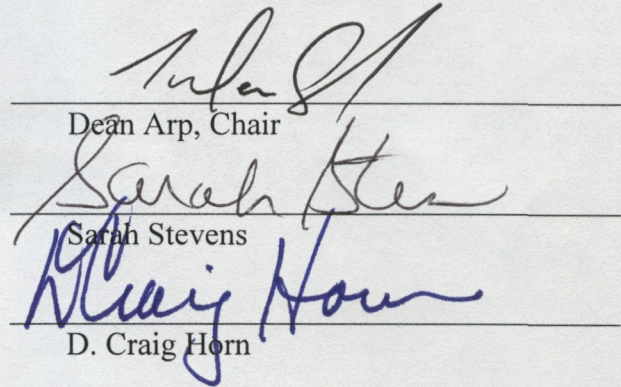 Dean Arp, Chair
Sarah Stevens
Sarah Stevens
D Craig Horn
D. Craig Horn